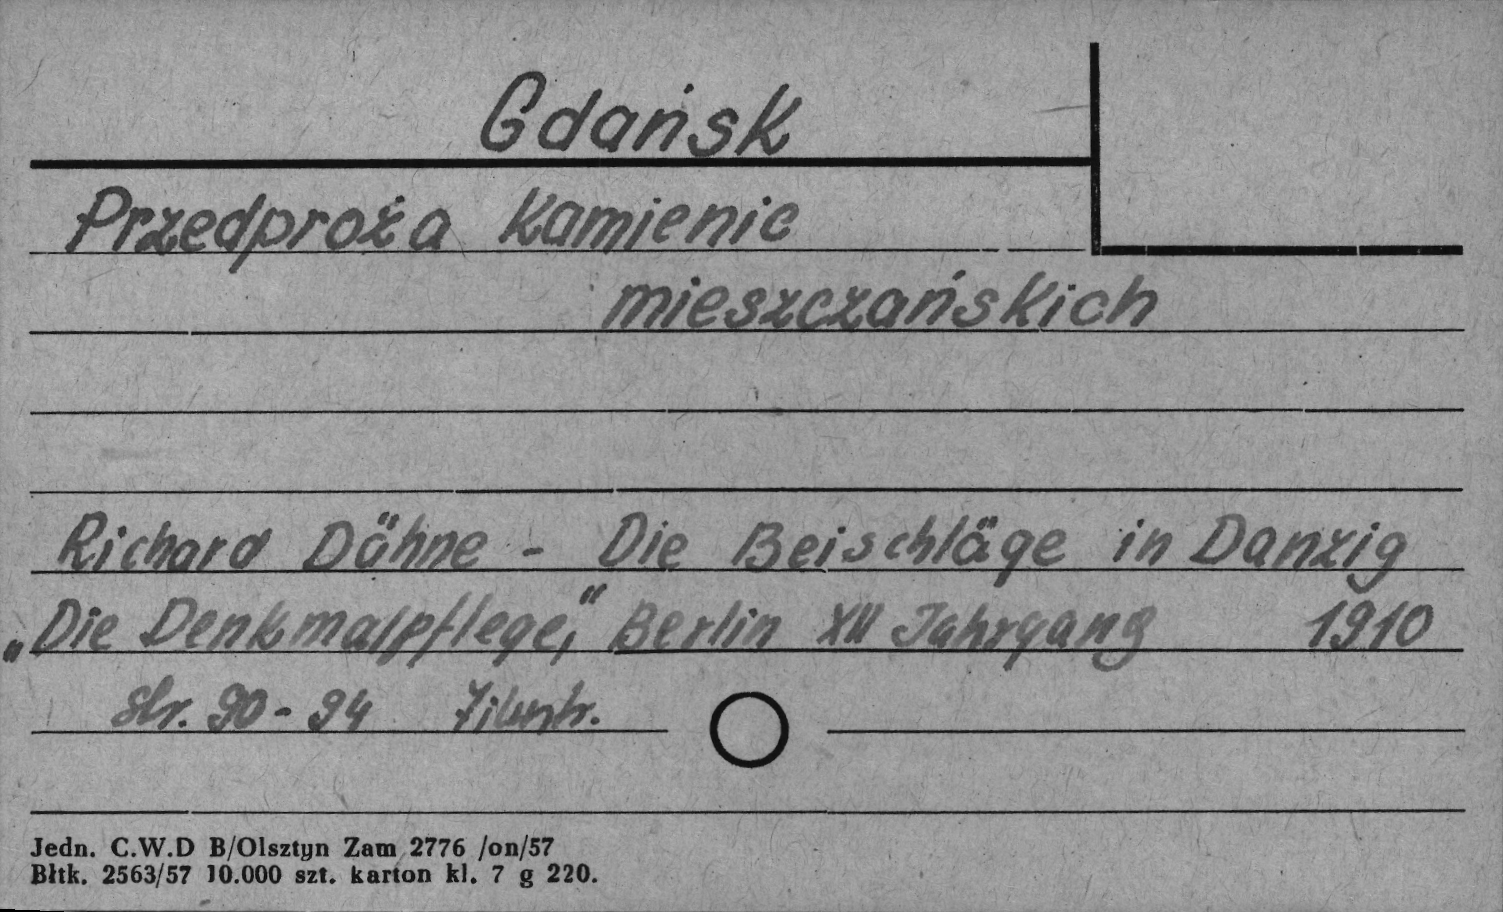 Gdańsk
Przedproża Kamienic
mieszczańskich
Richard Dähne - Die Beischläge in Danzig
„Die Denkmalpflege,“ Berlin XII Jahrgang 1910
str. 90-94
Jedn. C.W.D B/Olsztyn Zam 2776 /on/57
Błtk. 2563/57 10.000 szt. karton kl. 7 g 220.